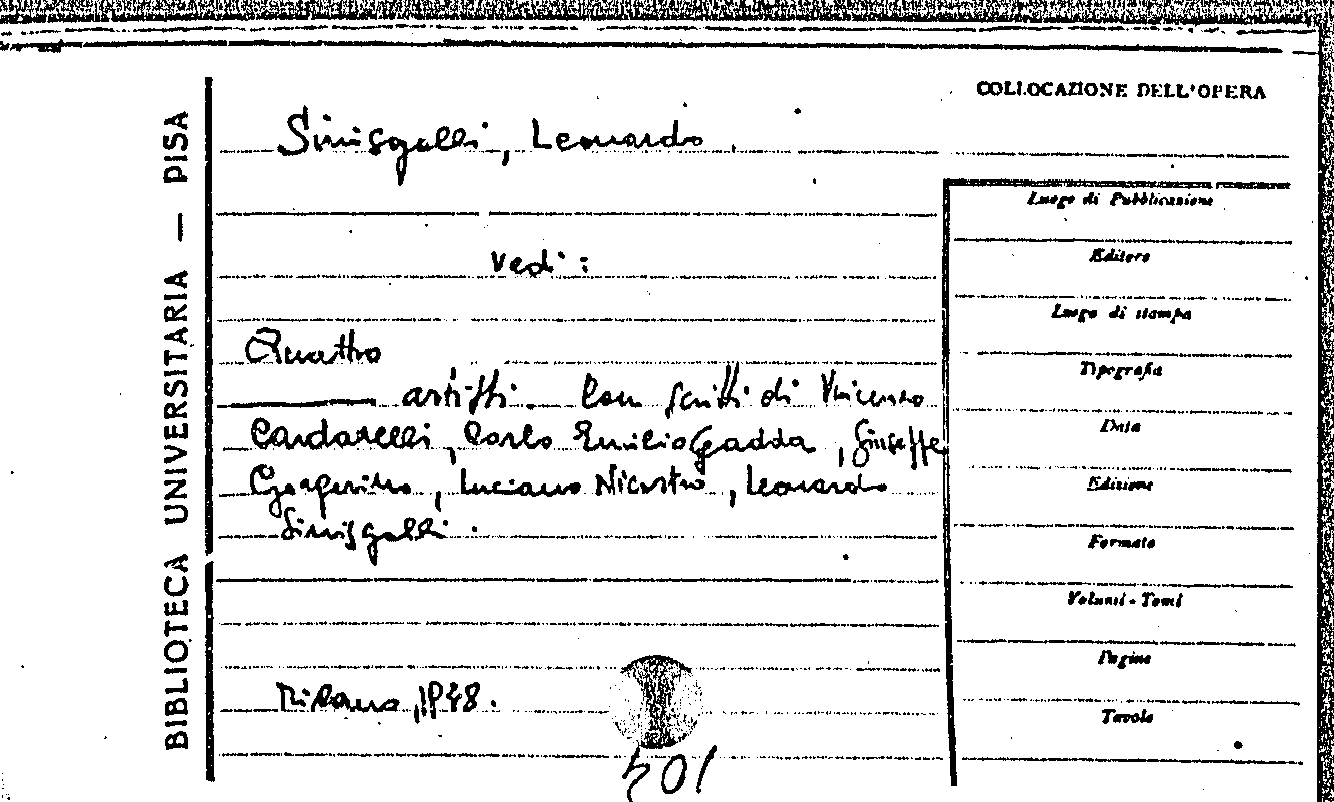 BIBLIOTECA UNIVERSITARIA — PISA
COLLOCAZIONE DELL'OPERA
Sinisgalli, Leonardo.
Vedi:
Quattro
artisti. Con scritti di Vincenzo
Cardarelli, Carlo Emilio Gadda, Giuseppe
Gorgerino, Luciano Nicastro, Leonardo
Sinisgalli.
Milano, 1948.
Luogo di Pubblicazione
Editore
Luogo di stampa
Tipografia
Data
Edizione
Formato
Volumi - Tomi
Pagine
Tavole